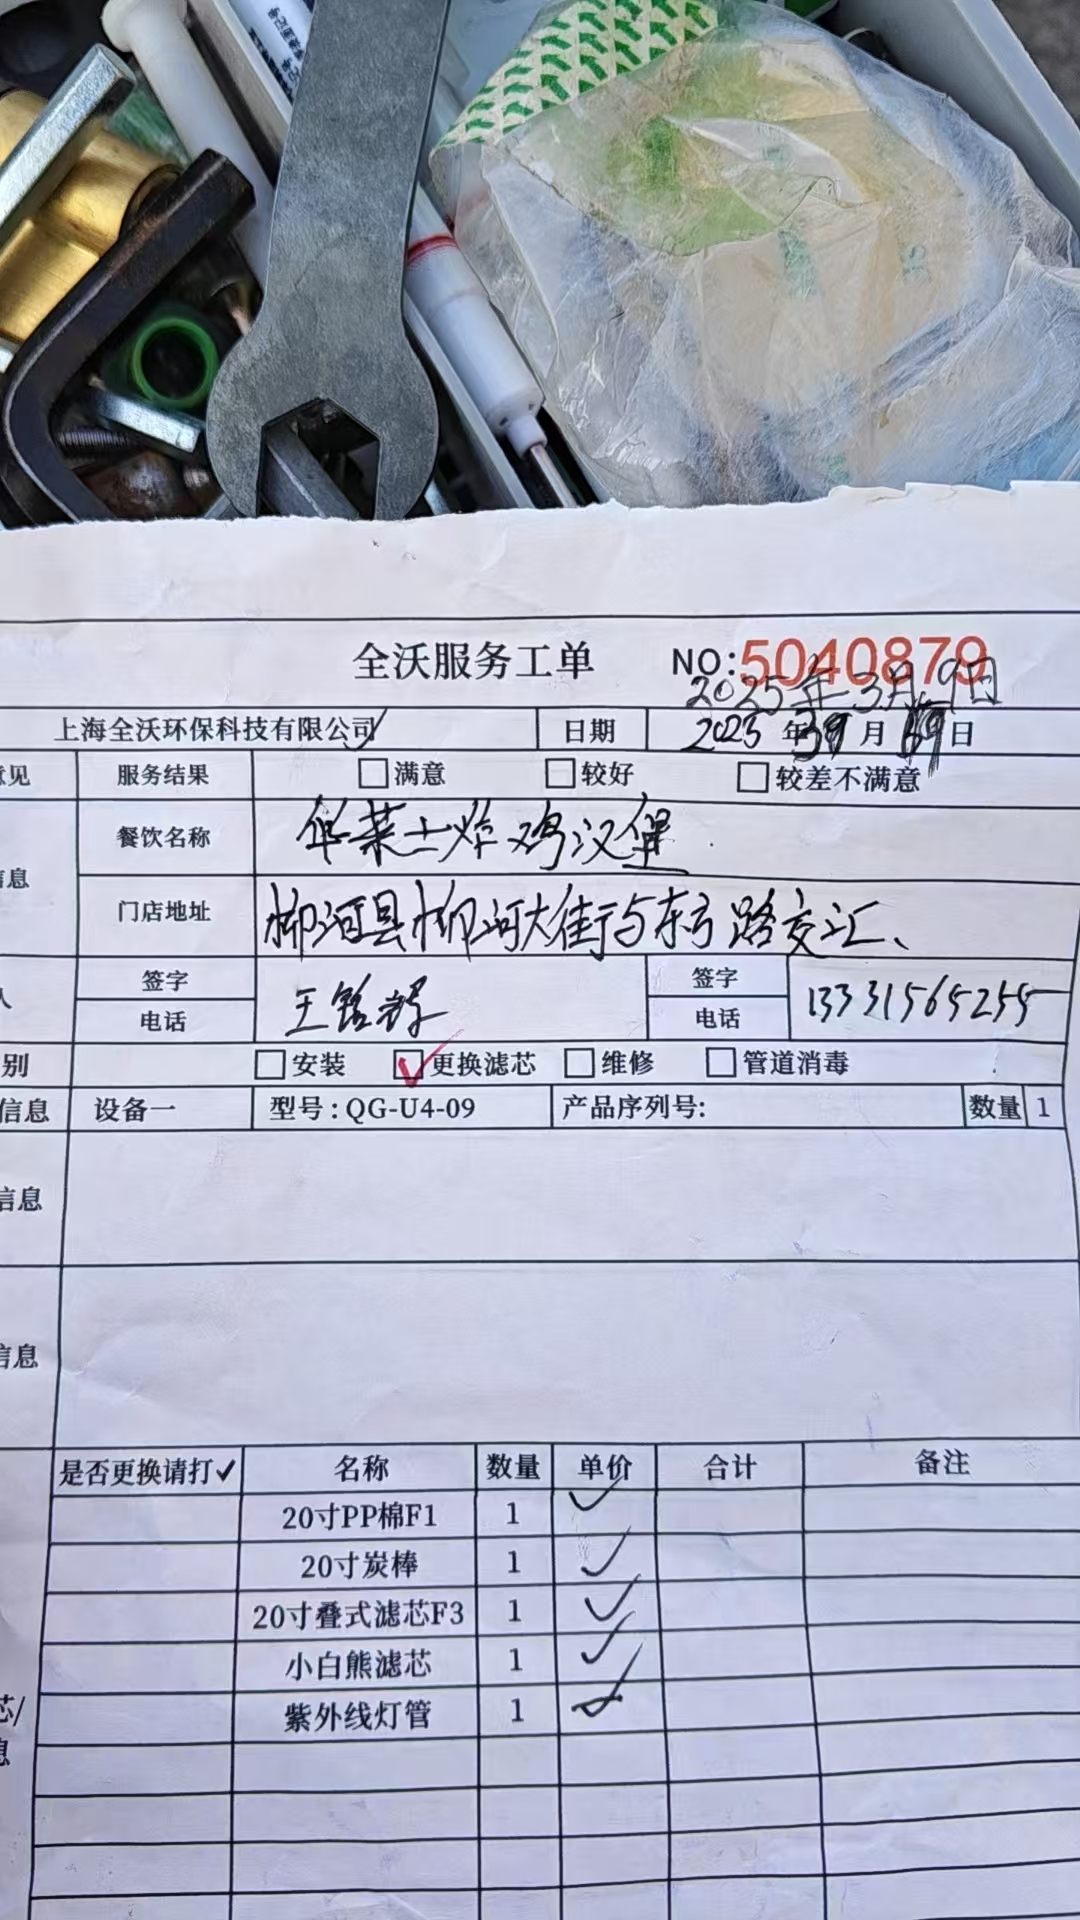 全沃服务工单 NO:5040879
2025年3月19日
上海全沃环保科技有限公司 日期 2025年 月 日
意见 服务结果 满意 较好 较差不满意
餐饮名称 华莱士炸鸡汉堡
信息
门店地址 柳河县柳河大街与东方路交汇、
人 签字 签字
电话 王铭辉 电话 13331565255
别 安装 ✓更换滤芯 维修 管道消毒
信息 设备一 型号:QG-U4-09 产品序列号: 数量 1
信息
信息
是否更换请打✓ 名称 数量 单价 合计 备注
20寸PP棉F1 1 ✓
20寸炭棒 1 ✓
20寸叠式滤芯F3 1 ✓
小白熊滤芯 1 ✓
紫外线灯管 1 ✓
芯/
息